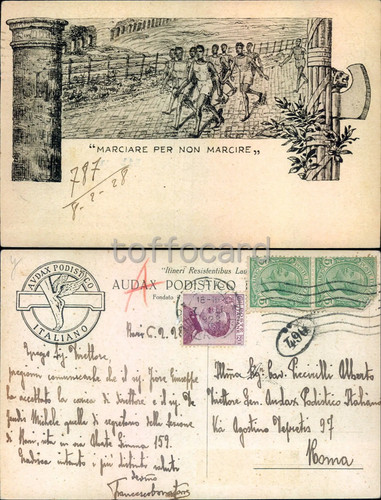 "MARCIARE PER NON MARCIRE„
787
8-2-28
toffocard
AUDAX PODISTICO
ITALIANO
"Itineri Resistentibus Lau
AUDAX PODISTICO
Fondato
A
Bari 6.2.28
467
Egregio Sig. Direttore,
pregiomi comunicarle che il sig. Fiore Giuseppe
ha accettato la carica di direttore e il sig. De
Michele quella di segretario della sezione
di Bari, sita in via Abate Gimma 159.
Gradisca intanto i più distinti saluti
Ill.mo Sig. Cav. Piccirilli Alberto
Direttore Gen. Audax Podistico Italiano
Via Agostino Depretis 97
Roma